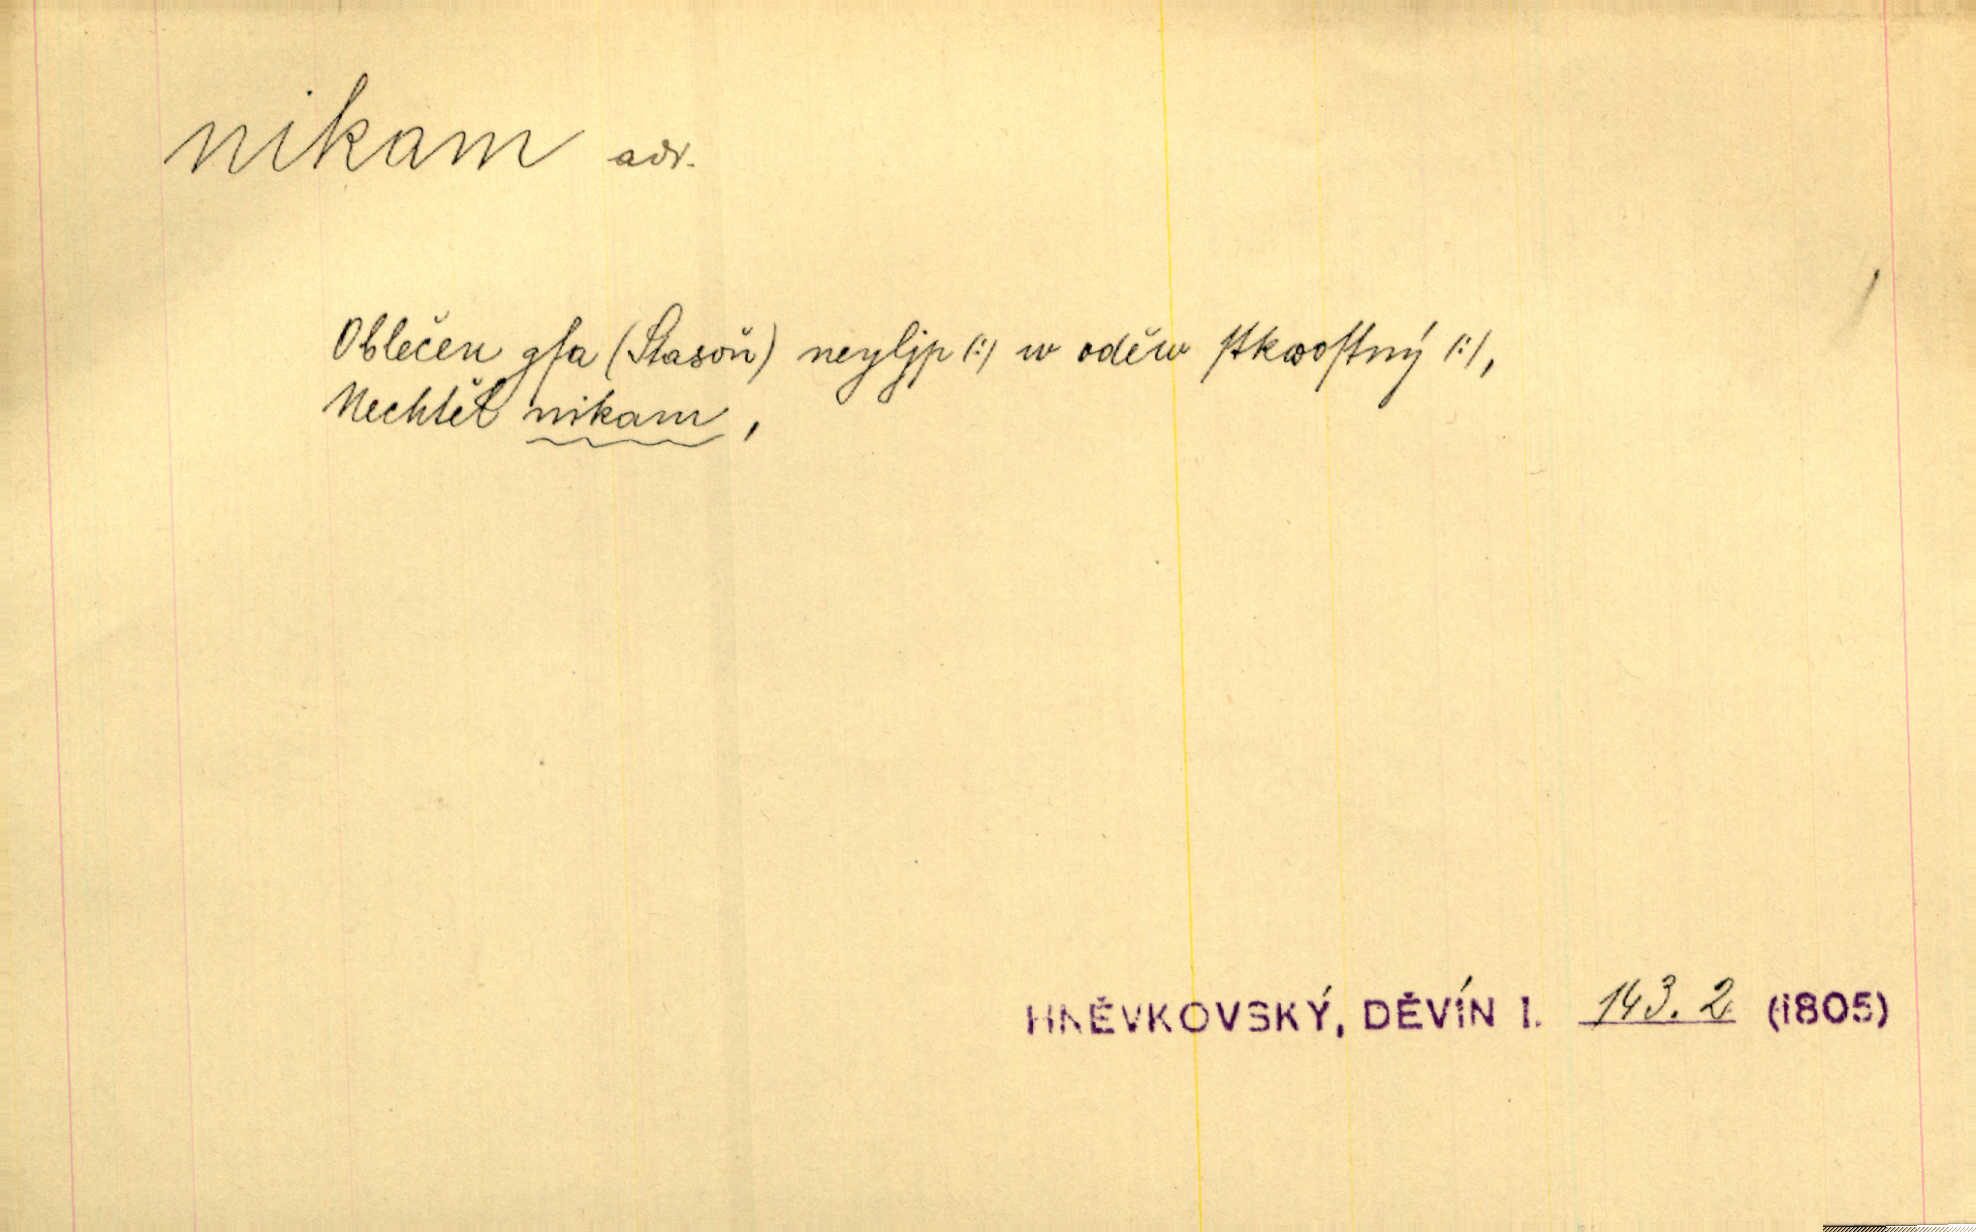 nikam adv.
Oblečen gſa (Stasoň) neyljp (:) w oděw ſtkwoſtný (:),
Nechtěl nikam,
HNĚVKOVSKÝ, DĚVÍN I. 143. 2 (1805)